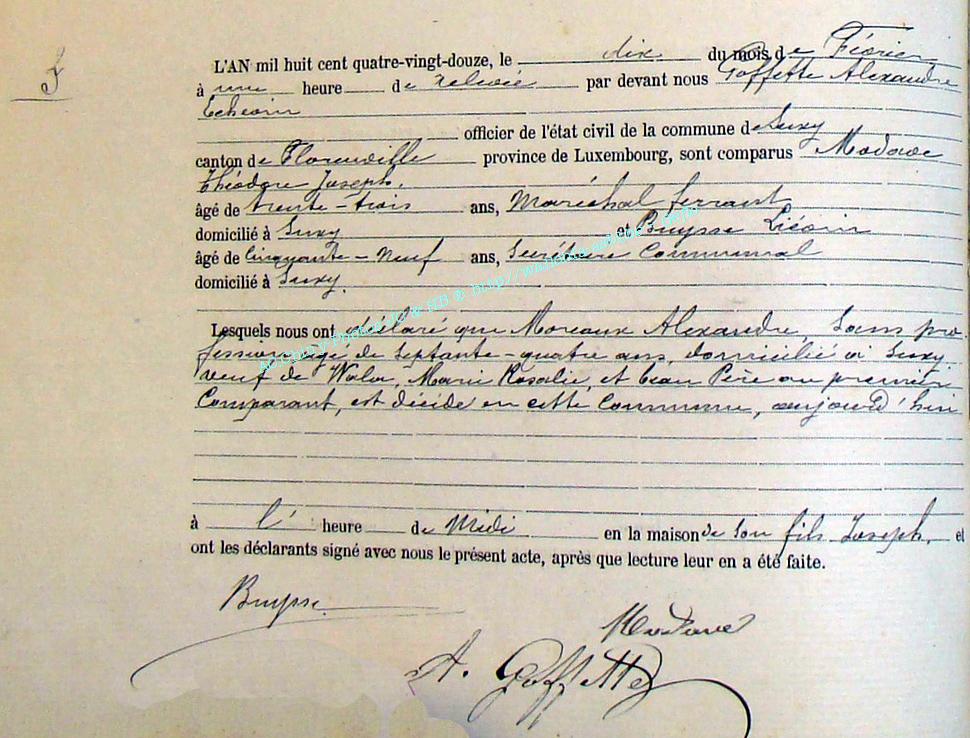 3
L'AN mil huit cent quatre-vingt-douze, le dix du mois de Février
à une heure de relevée par devant nous Goffette Alexandre
Echevin
officier de l'état civil de la commune de Suxy
canton de Florenville province de Luxembourg, sont comparus Modave
Théodore Joseph.
âgé de trente-trois ans, Maréchal ferrant
domicilié à Suxy et Buysse Liévin
âgé de Cinquante-Neuf ans, Secrétaire Communal
domicilié à Suxy.
Lesquels nous ont déclaré que Moreaux Alexandre, Sans pro
fession, agé de Septante-quatre ans, domicilié à Suxy
veuf de Marie Rosalie, et beau Père au premier
Comparant, est décidé en cette Commune, aujourd'hui
à l' heure de Midi en la maison de son fils Joseph, et
ont les déclarants signé avec nous le présent acte, après que lecture leur en a été faite.
Buysse
Modave
A. Goffette